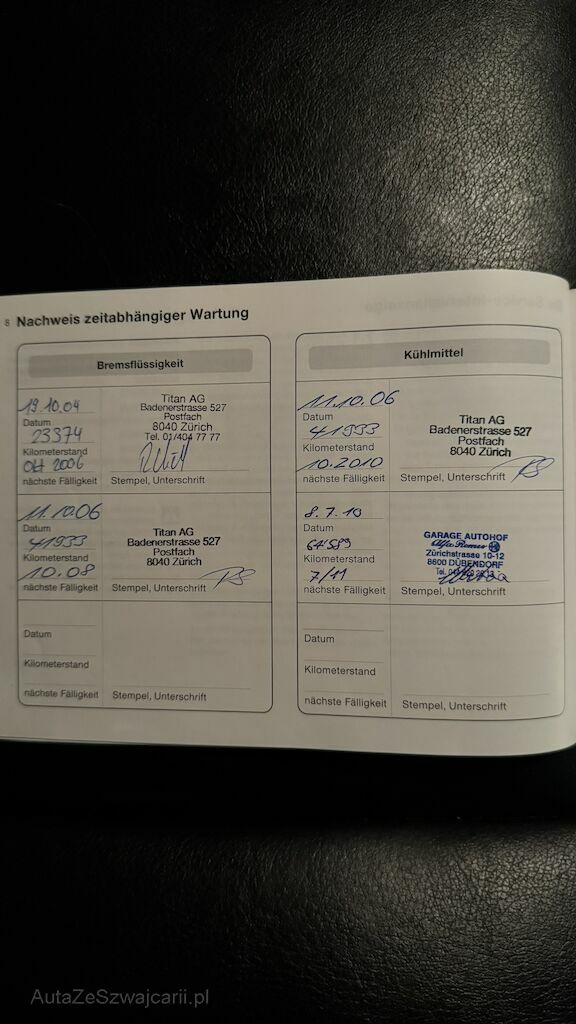 8 Nachweis zeitabhängiger Wartung
Bremsflüssigkeit
19.10.04
Datum
23374
Kilometerstand
Okt 2006
nächste Fälligkeit
Titan AG
Badenerstrasse 527
Postfach
8040 Zürich
Tel. 01/404 77 77
Stempel, Unterschrift
11.10.06
Datum
41933
Kilometerstand
10.08
nächste Fälligkeit
Titan AG
Badenerstrasse 527
Postfach
8040 Zürich
Stempel, Unterschrift
Datum
Kilometerstand
nächste Fälligkeit
Stempel, Unterschrift
Kühlmittel
11.10.06
Datum
41933
Kilometerstand
10.2010
nächste Fälligkeit
Titan AG
Badenerstrasse 527
Postfach
8040 Zürich
Stempel, Unterschrift
8.7.10
Datum
64589
Kilometerstand
7/11
nächste Fälligkeit
GARAGE AUTOHOF
Alfa Romeo
Zürichstrasse 10-12
8600 DÜBENDORF
Tel.
Stempel, Unterschrift
Datum
Kilometerstand
nächste Fälligkeit
Stempel, Unterschrift
AutaZeSzwajcarii.pl